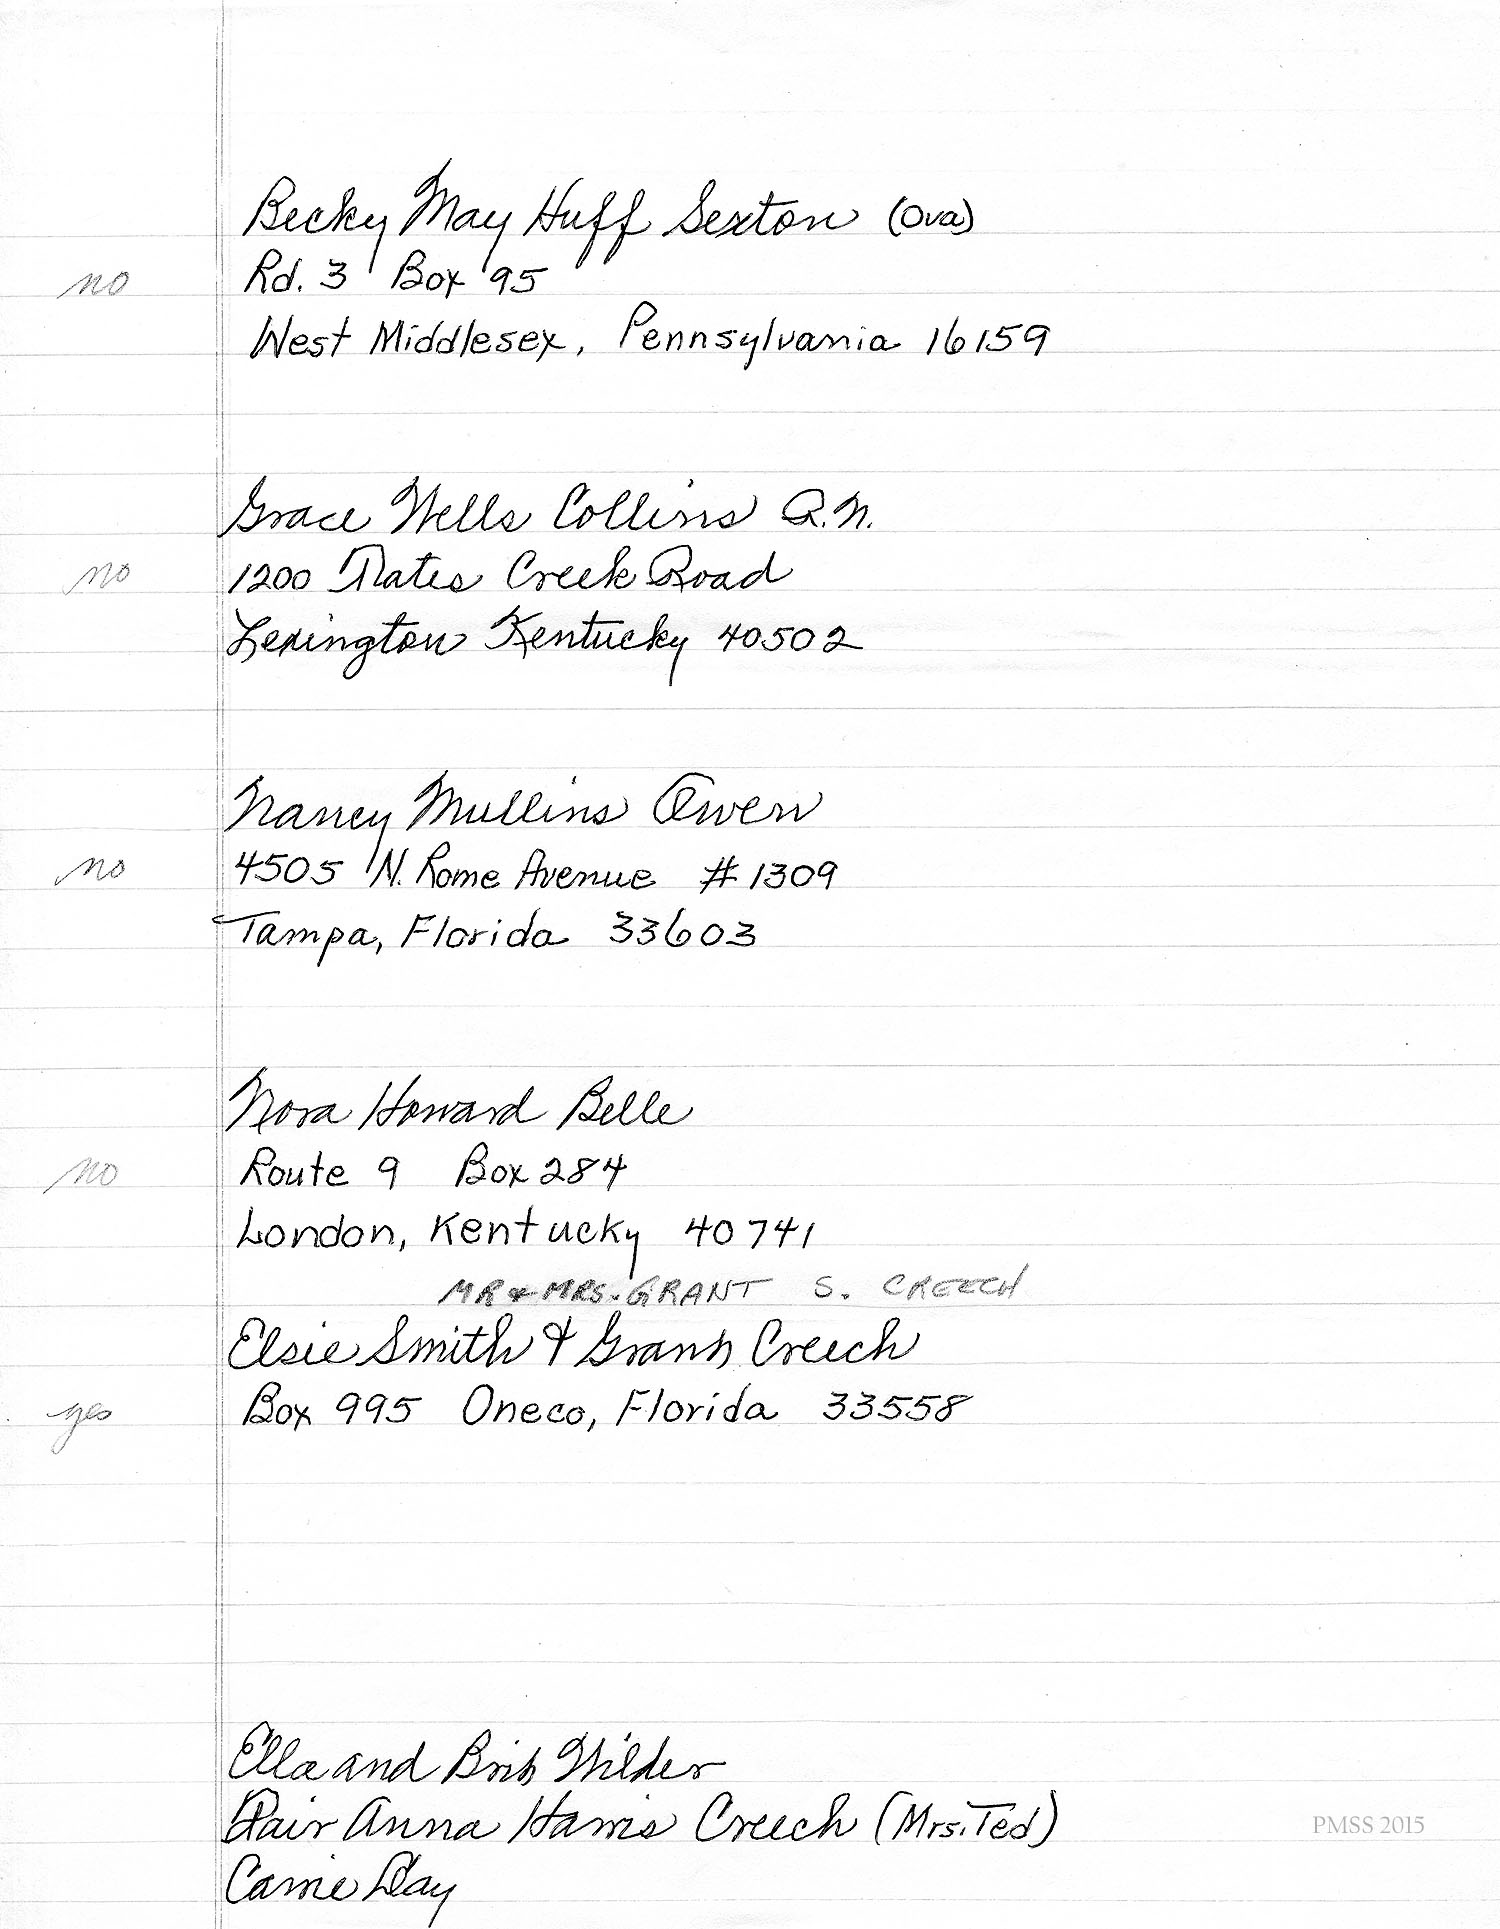 Becky May Huff Sexton (Ova)
no Rd. 3 Box 95
West Middlesex, Pennsylvania 16159
Grace Wells Collins R.N.
no 1200 Tates Creek Road
Lexington Kentucky 40502
Nancy Mullins Owen
no 4505 N. Rome Avenue # 1309
Tampa, Florida 33603
Nora Howard Belle
no Route 9 Box 284
London, Kentucky 40741
MR & MRS. GRANT S. CREECH
Elsie Smith & Grant Creech
yes Box 995 Oneco, Florida 33558
Ella and Brit Wilder
Anna Harris Creech (Mrs. Ted)
PMSS 2015
Carrie Day